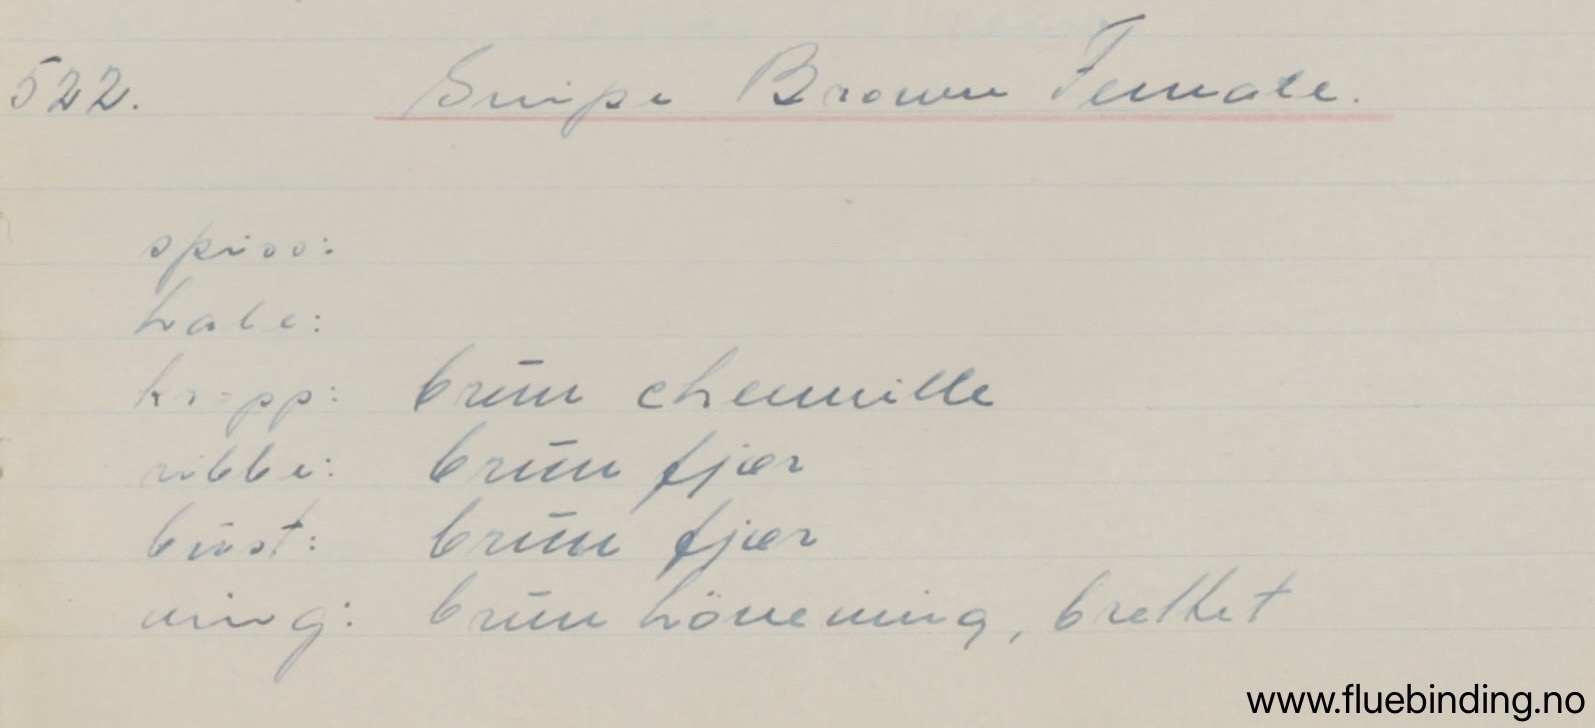 522. Snipe Brown Female.
spiss:
hale:
kropp: brun chennille
ribbe: brun fjær
bust: brun fjær
ving: brun hönneving, brettet
www.fluebinding.no